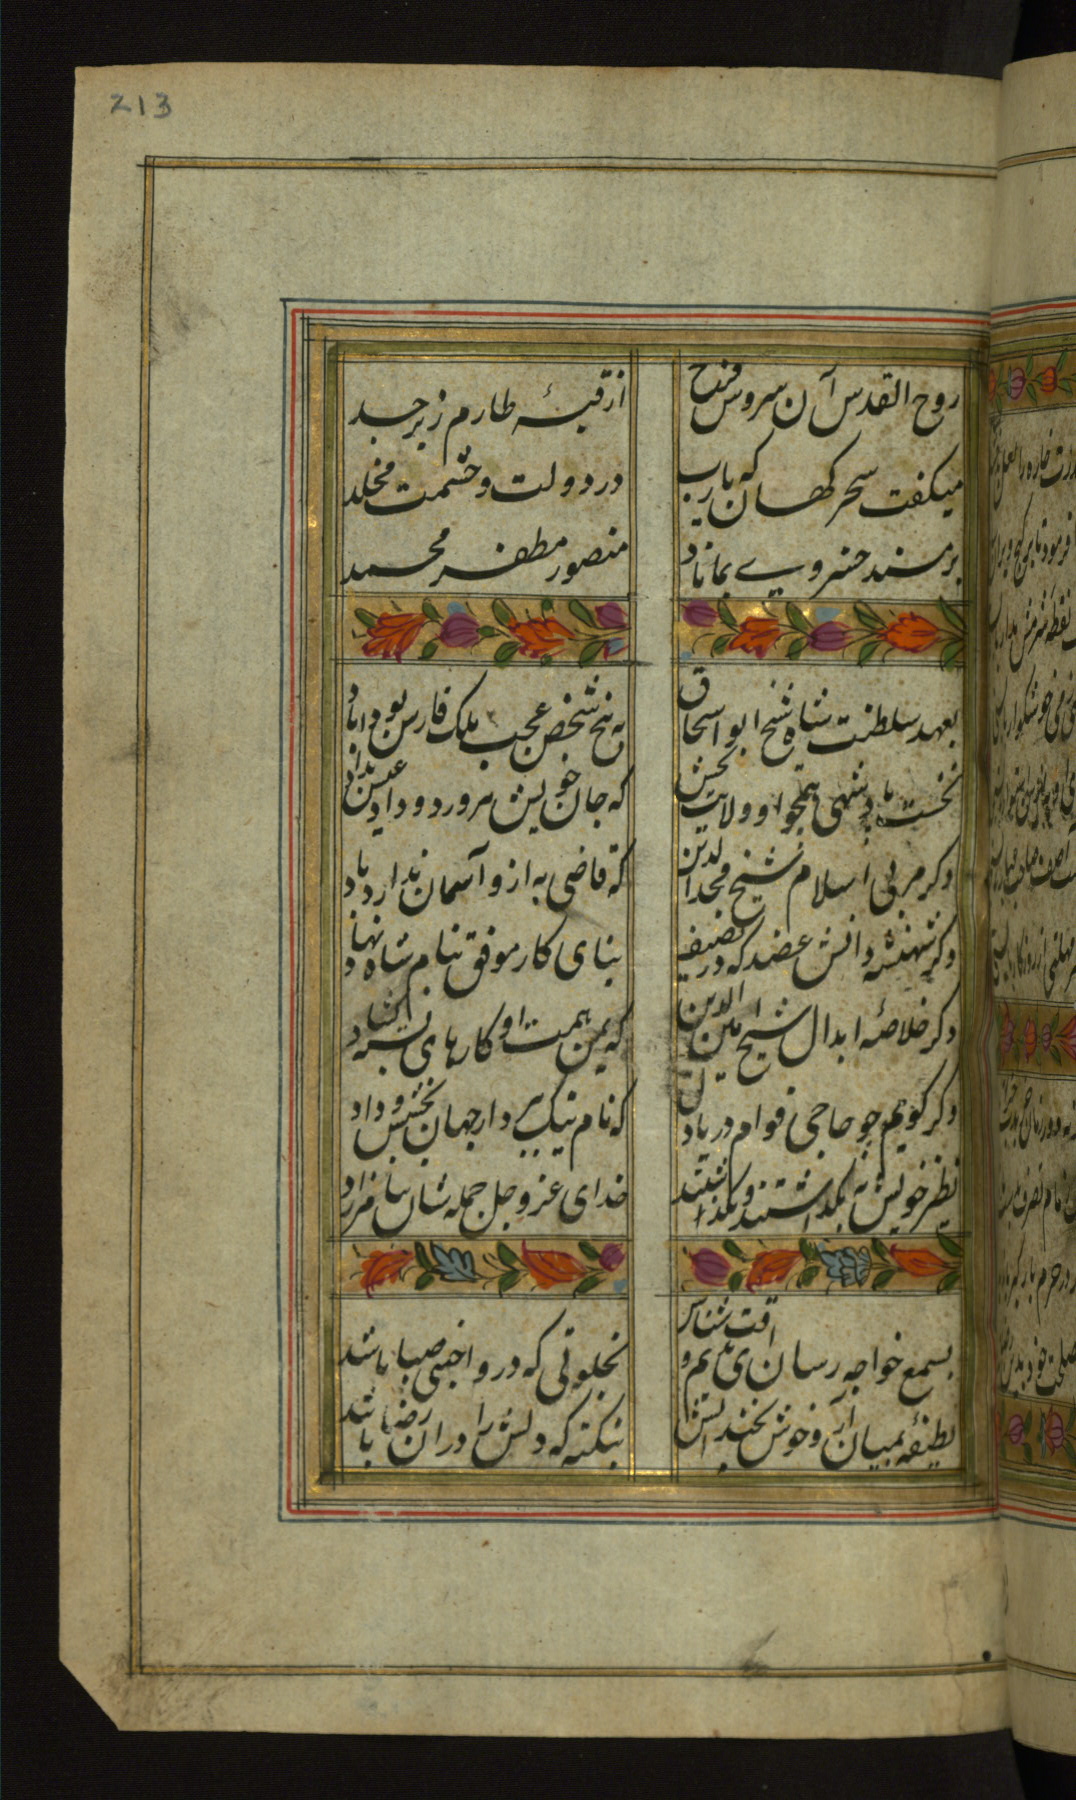 213
روح القدس آن سروش فرخ
از قبهٔ طارم زبرجد
میکفت سحر کهان که یارب
در دولت و حشمت مخلد
بر مسند خسروی بماناد
منصور مظفر محمد
بعهد سلطنت شاه شیخ ابو اسحاق
به پنج شخص عجب ملک فارس بود اباد
نخست پادشهی همچو او ولایت بخش
که جان خویش بپرورد و داد عیش بداد
دکر مربی اسلام شیخ مجد الدین
که قاضی به ازو آسمان ندارد یاد
دکر شهنشه دانش عضد که در تصنیف
بنای کار موفق بنام شاه نهاد
دکر خلاصهٔ ابدال شیخ امین الدین
که یمن همت او کارهای بسته کشاد
دکر کریم چو حاجی قوام دریا دل
که نام نیک ببرد از جهان ببخشش و داد
نظیر خویش نه بکذاشتند و بکذاشتند
خدای عز و جل جمله شان بیامرزاد
بسمع خواجه رسان ای ندیم وقت شناس
بخلوتی که درو اجنبی صبا باشد
لطیفهٔ بمیان آر و خوش بخندانش
بنکتهٔ که دلش را دران رضا باشد